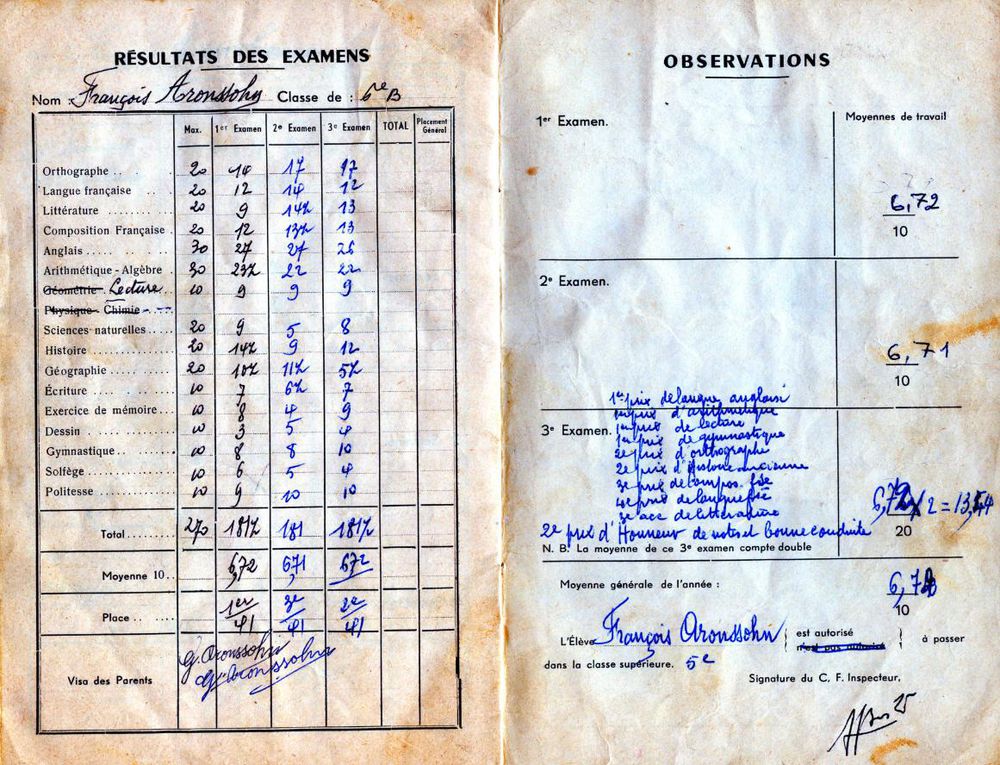 RÉSULTATS DES EXAMENS
Nom : François Aronssohn Classe de : 6e B
Max. 1er Examen 2e Examen 3e Examen TOTAL Placement Général
Orthographe .. . 20 17 17
Langue française .. . 20 12 14 12
Littérature ........ 20 9 14½ 13
Composition Française . 20 12 13½ 13
Anglais..... .. .. . 30 27 27 26
Arithmétique - Algèbre . 30 23½ 22 22
Géométrie Lecture.. 10 9 9 9
Physique - Chimie
Sciences naturelles..... 20 9 5 8
Histoire .............. 20 14½ 9 12
Géographie ..... ...... 20 10½ 11½ 5½
Écriture .............. 10 7 6½ 7
Exercice de mémoire... 10 8 4 9
Dessin ............... 10 3 5 4
Gymnastique.......... 10 8 8 10
Solfège .............. 10 6 5 4
Politesse ............. 10 9 10 10
Total......... 270 181½ 181 181½
Moyenne 10 .. 6,72 6,71 6,72
Place.. ..... 1er/41 3e/41 2e/41
Visa des Parents
G. Aronssohn
G. Aronssohn
OBSERVATIONS
1er Examen. Moyennes de travail
6,72
10
2e Examen.
6,71
10
1er prix de langue anglaise
1er prix d'arithmétique
3e Examen. 1er prix de lecture
1er prix de gymnastique
2e prix d'orthographe
2e prix d'Histoire ancienne
3e prix de compos. fse
4e prix de langue fse
3e acc de littérature
6,72 x 2 = 13,44
20
2e prix d'Honneur de notes et bonne conduite
N. B. La moyenne de ce 3e examen compte double
Moyenne générale de l'année :
10
L'Élève François Aronssohn est autorisé n'est pas autorisé à passer
dans la classe supérieure. 5e
Signature du C. F. Inspecteur,